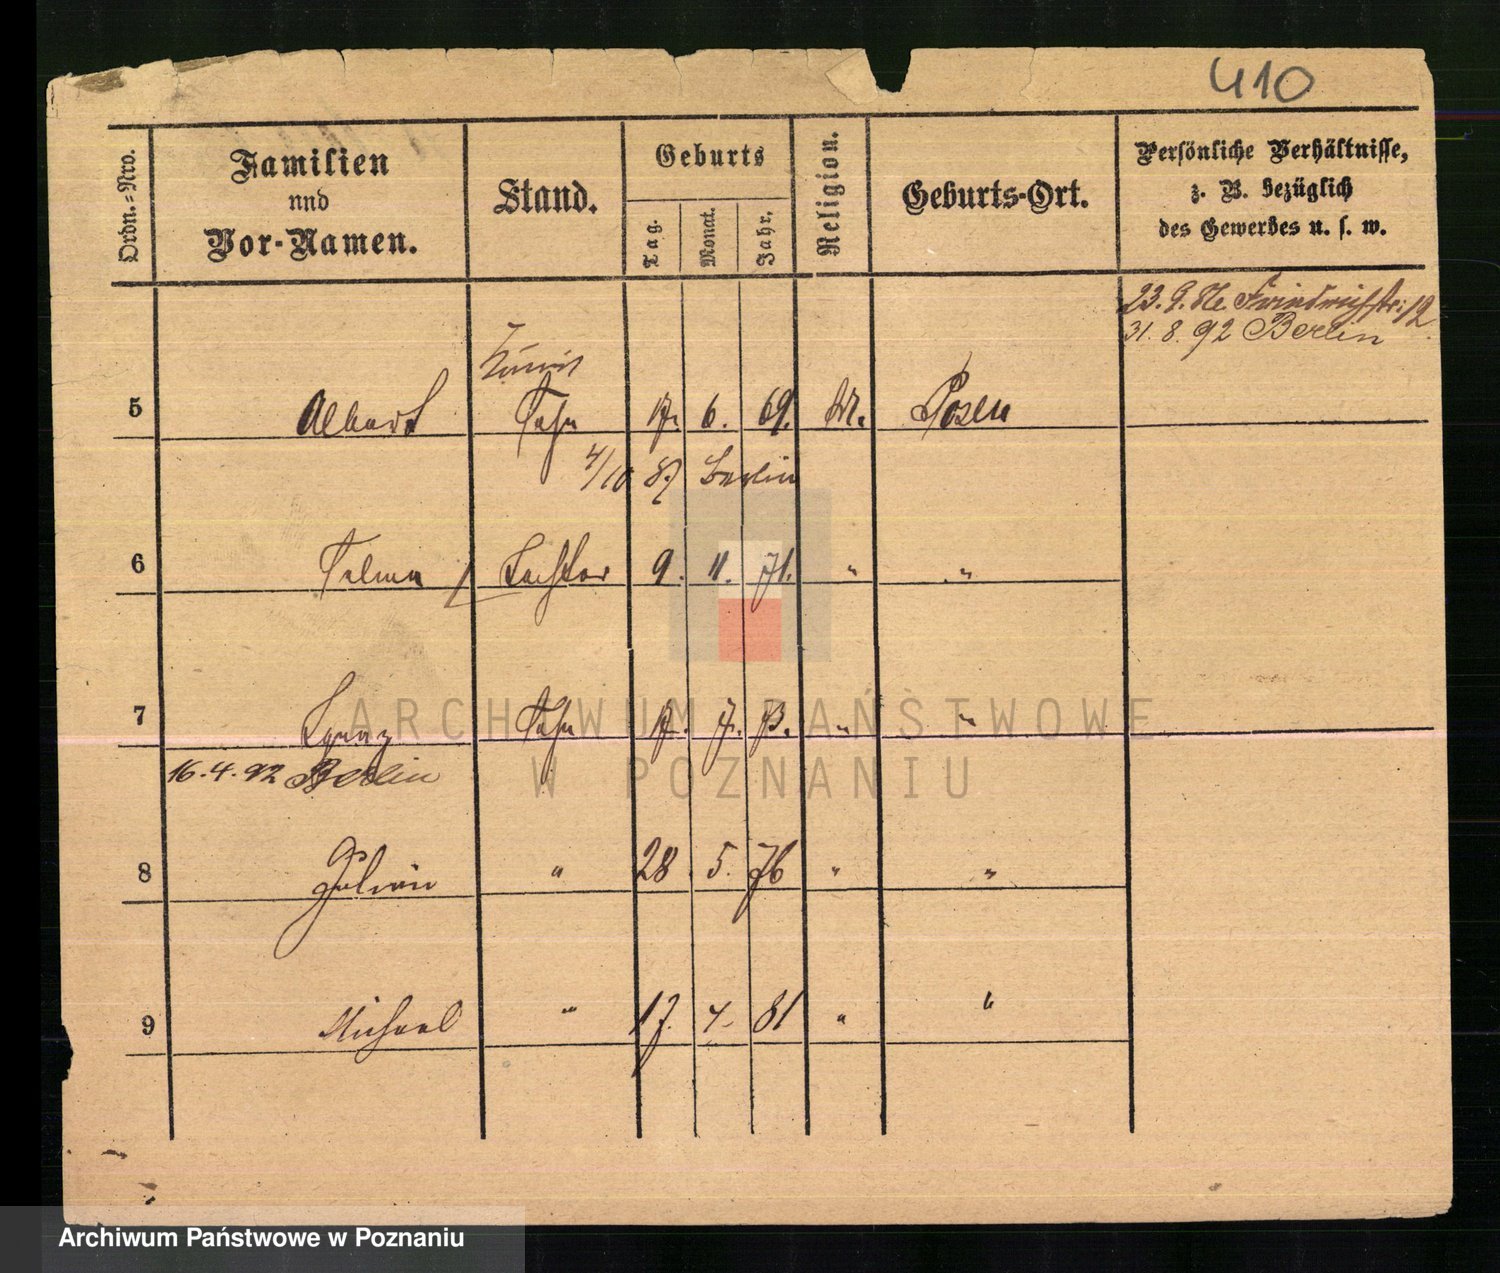 410
Ordn.-Nro.
Familien
und
Vor-Namen.
Stand.
Geburts
Tag.
Monat.
Jahr.
Religion.
Geburts-Ort.
Persönliche Verhältnisse,
z. B. bezüglich
des Gewerbes u. s. w.
23. 9. Friedrichstr. 12
31. 8. 92 Berlin
5 Albert Sohn 17. 6. 69. Posen
4/10 87 Berlin
6 Selma Tochter 9. 11. 71. " "
7 Ignaz Sohn 17. 7. 73. " "
16. 4. 92 Berlin
8 " 28. 5. 76 " "
9 Michael " 17. 4. 81 " "
ARCHIWUM PAŃSTWOWE
W POZNANIU
Archiwum Państwowe w Poznaniu